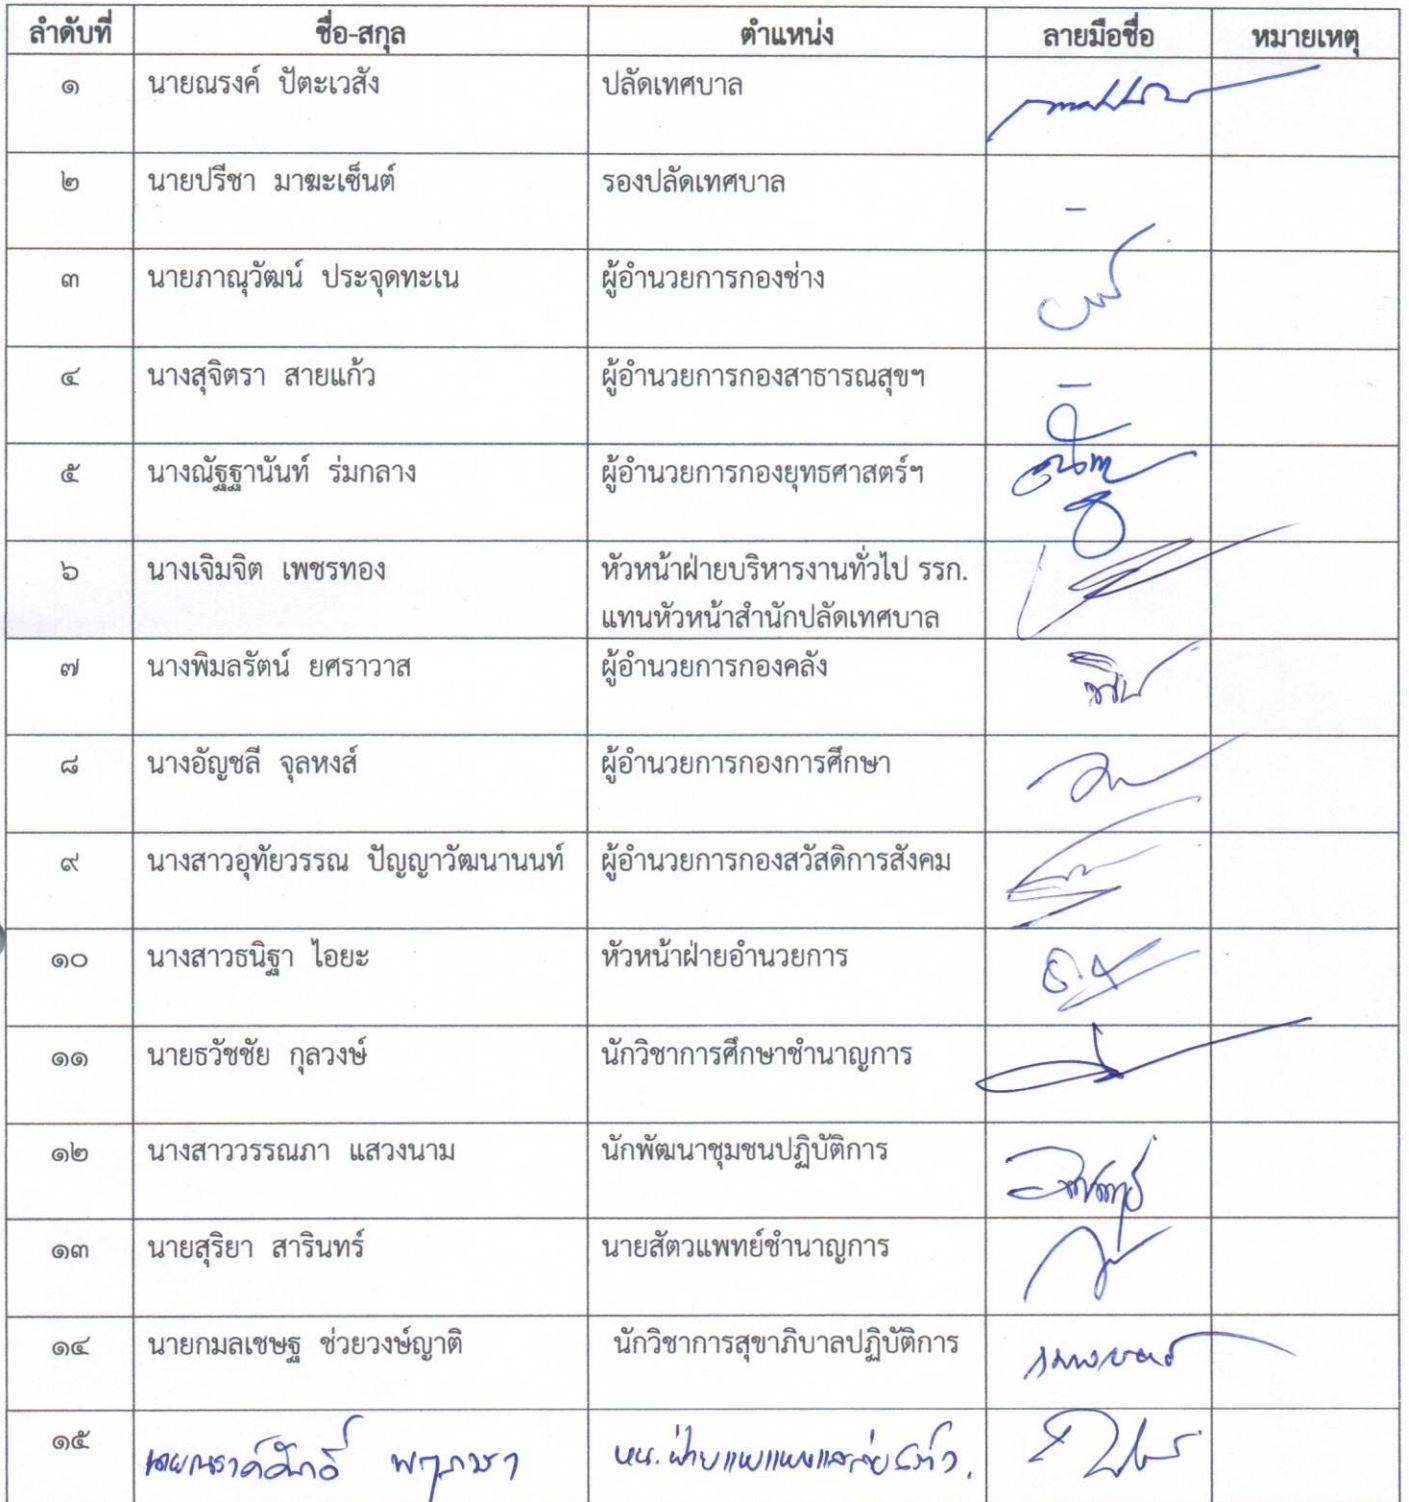 ลำดับที่ ชื่อ-สกุล ตำแหน่ง ลายมือชื่อ หมายเหตุ
๑ นายณรงค์ ปัตะเวสัง ปลัดเทศบาล
๒ นายปรีชา มาฆะเซ็นต์ รองปลัดเทศบาล -
๓ นายภาณุวัฒน์ ประจุดทะเน ผู้อำนวยการกองช่าง
๔ นางสุจิตรา สายแก้ว ผู้อำนวยการกองสาธารณสุขฯ -
๕ นางณัฐฐานันท์ ร่มกลาง ผู้อำนวยการกองยุทธศาสตร์ฯ
๖ นางเจิมจิต เพชรทอง หัวหน้าฝ่ายบริหารงานทั่วไป รรก.
แทนหัวหน้าสำนักปลัดเทศบาล
๗ นางพิมลรัตน์ ยศราวาส ผู้อำนวยการกองคลัง
๘ นางอัญชลี จุลหงส์ ผู้อำนวยการกองการศึกษา
๙ นางสาวอุทัยวรรณ ปัญญาวัฒนานนท์ ผู้อำนวยการกองสวัสดิการสังคม
๑๐ นางสาวธนิฐา ไอยะ หัวหน้าฝ่ายอำนวยการ
๑๑ นายธวัชชัย กุลวงษ์ นักวิชาการศึกษาชำนาญการ
๑๒ นางสาววรรณภา แสวงนาม นักพัฒนาชุมชนปฏิบัติการ
๑๓ นายสุริยา สารินทร์ นายสัตวแพทย์ชำนาญการ
๑๔ นายกมลเชษฐ ช่วยวงษ์ญาติ นักวิชาการสุขาภิบาลปฏิบัติการ
๑๕ หน. ฝ่าย